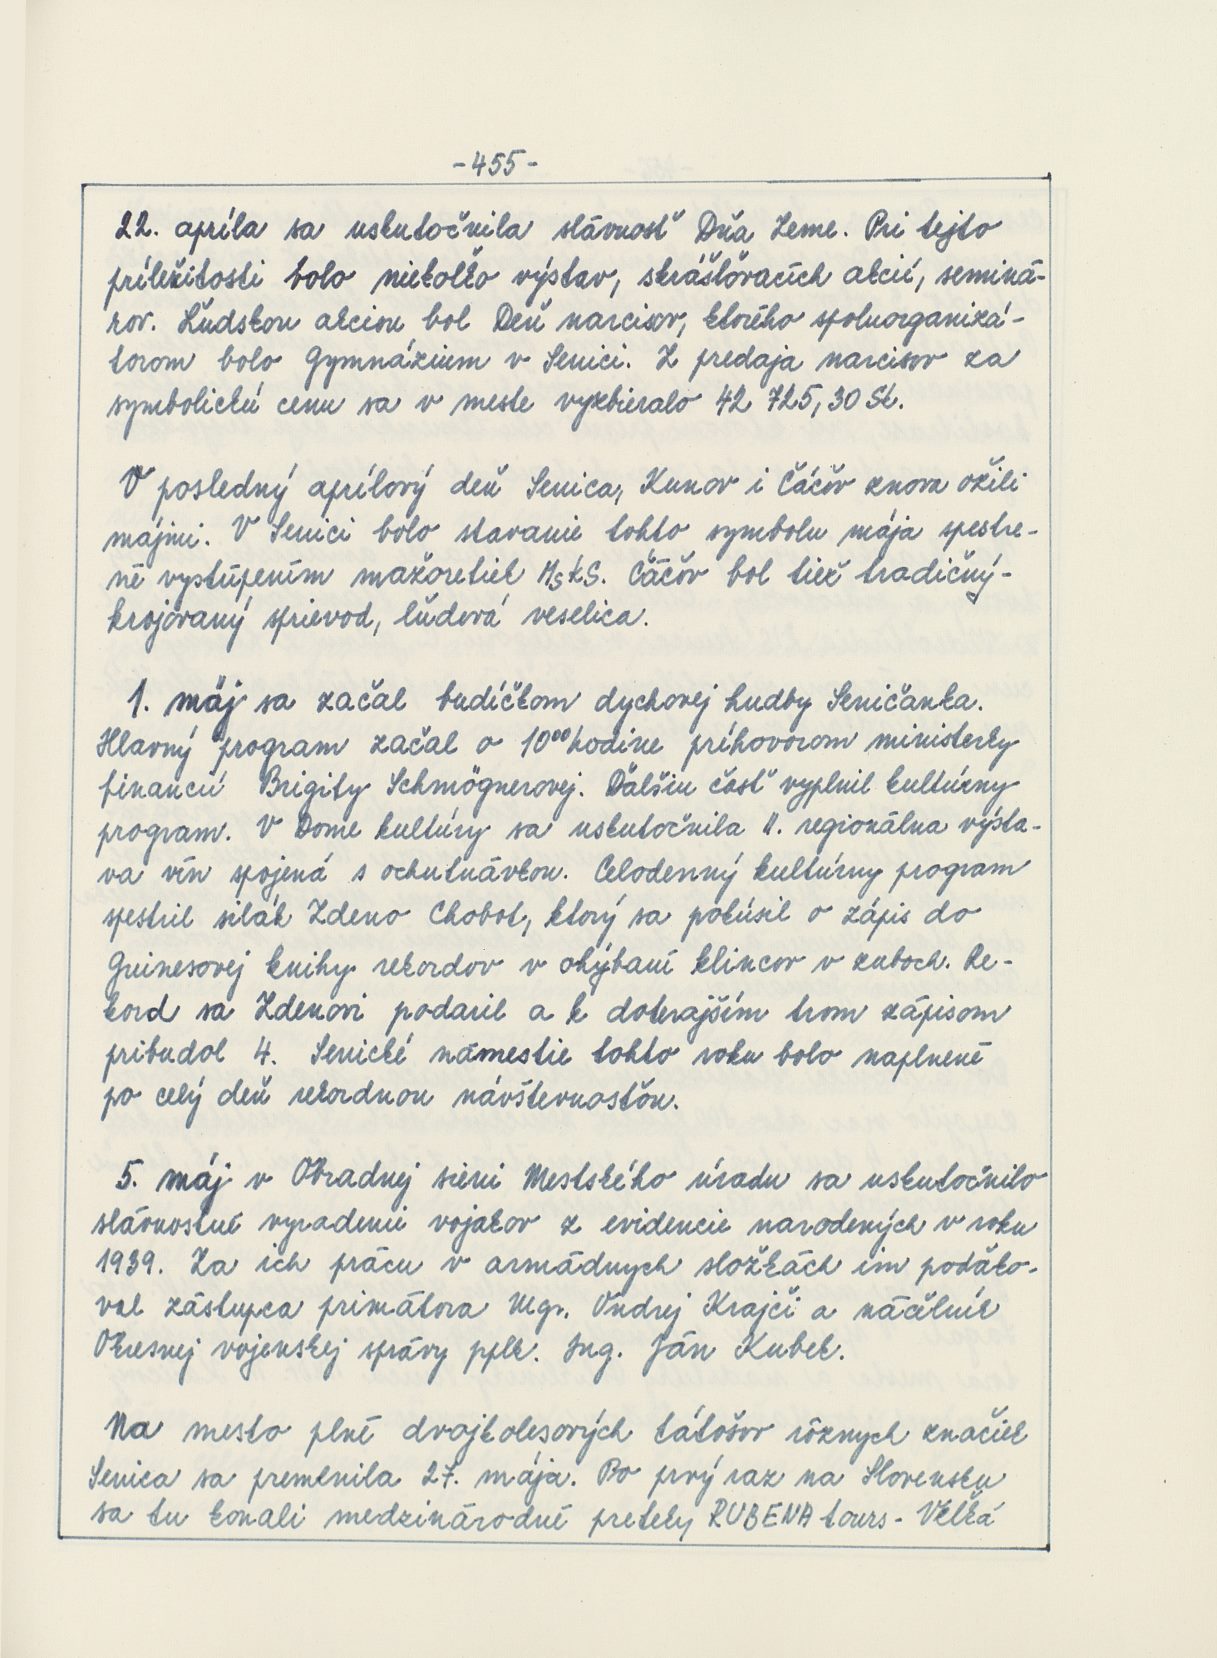 -455-
22. apríla sa uskutočnila slávnosť Dňa Zeme. Pri tejto
príležitosti bolo niekoľko výstav, skrášľovacích akcií, seminá-
rov. Ľudskou akciou bol Deň narcisov, ktorého spoluorganizá-
torom bolo Gymnázium v Senici. Z predaja narcisov za
symbolickú cenu sa v meste vyzbieralo 42 725,30 Sk.
V posledný aprílový deň Senica, Kunov i Čáčov znova ožili
májmi. V Senici bolo stavanie tohto symbolu mája spestre-
né vystúpením mažoretiek MsKS. Čáčov bol tiež tradičný-
krojovaný sprievod, ľudová veselica.
1. máj sa začal budíčkom dychovej hudby Seničanka.
Hlavný program začal o 10⁰⁰ hodine príhovorom ministerky
financií Brigity Schmögnerovej. Ďalšiu časť vyplnil kultúrny
program. V Dome kultúry sa uskutočnila II. regionálna výsta-
va vín spojená s ochutnávkou. Celodenný kultúrny program
spestril silák Zdeno Chobot, ktorý sa pokúsil o zápis do
Guinesovej knihy rekordov v ohýbaní klincov v zuboch. Re-
kord sa Zdenovi podaril a k doterajším trom zápisom
pribudol 4. Senické námestie tohto roku bolo naplnené
po celý deň rekordnou návštevnosťou.
5. máj v Obradnej sieni Mestského úradu sa uskutočnilo
slávnostné vyradenie vojakov z evidencie narodených v roku
1939. Za ich prácu v armádnych zložkách im poďako-
val zástupca primátora Mgr. Ondrej Krajči a náčelník
Okresnej vojenskej správy pplk. Ing. Ján Kubek.
Na mesto plné dvojkolesových tátošov rôznych značiek
Senica sa premenila 27. mája. Po prvý raz na Slovensku
sa tu konali medzinárodné preteky RUBENA tours - Veľká